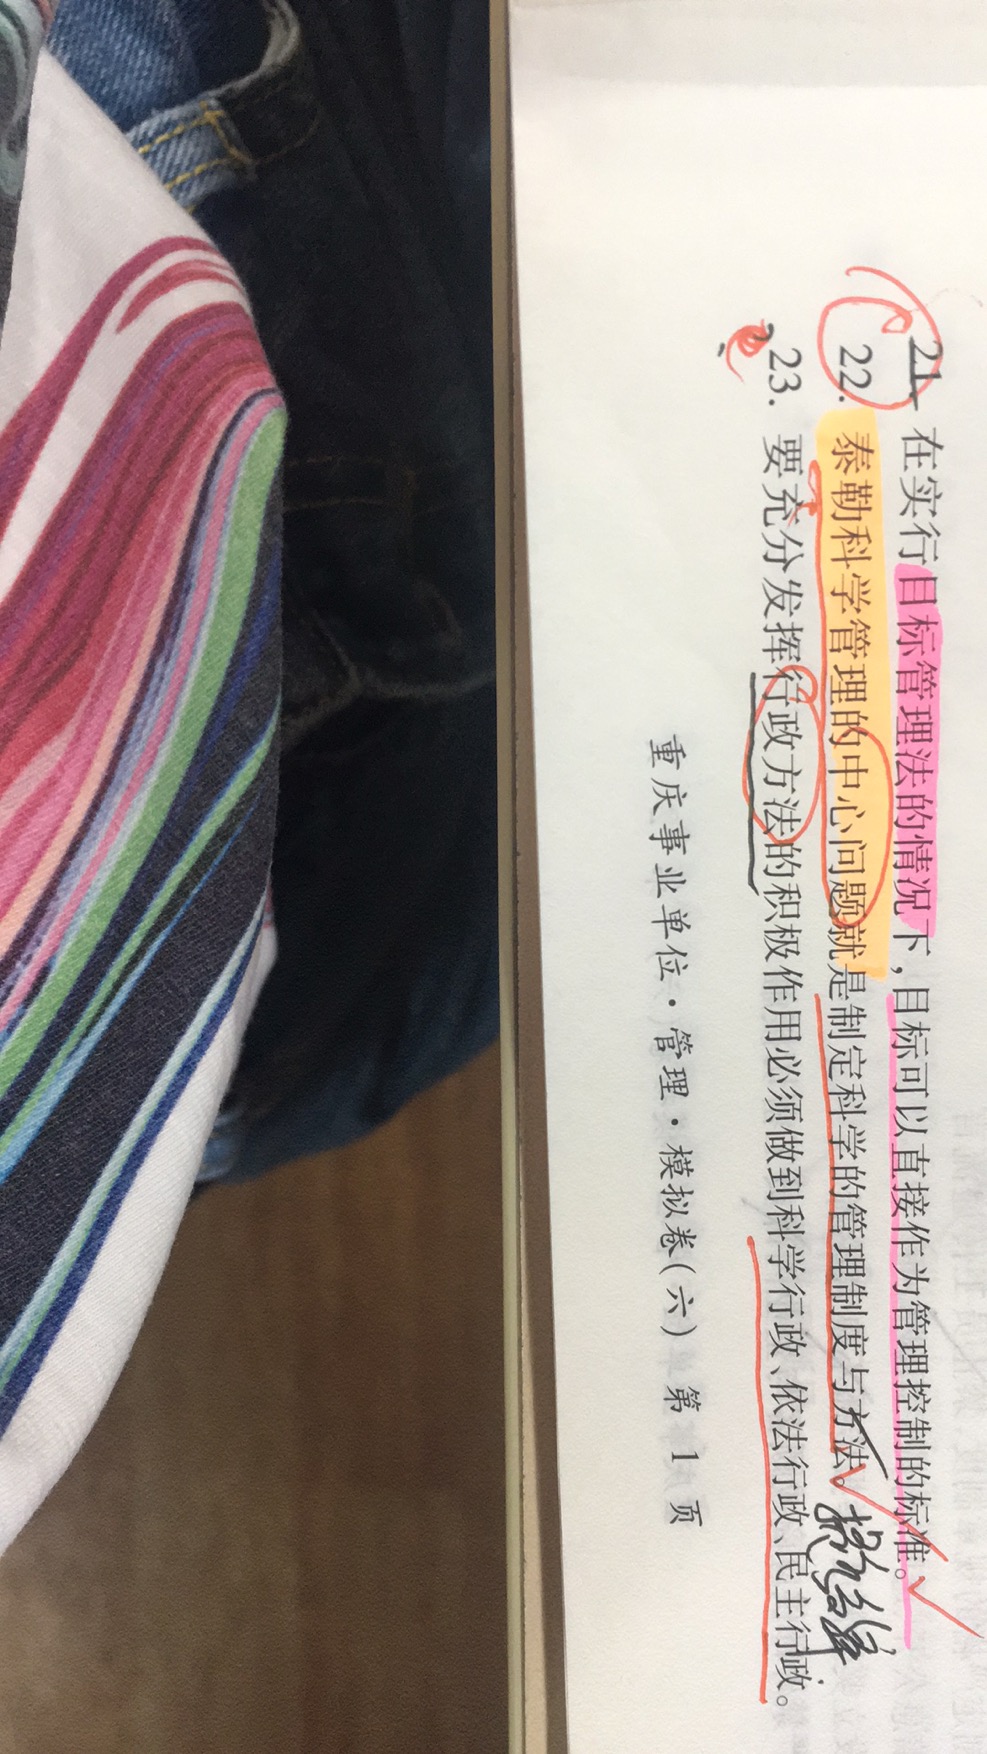 21 在实行目标管理法的情况下，目标可以直接作为管理控制的标准。
22. 泰勒科学管理的中心问题就是制定科学的管理制度与方法。
23. 要充分发挥行政方法的积极作用必须做到科学行政、依法行政、民主行政。
重庆事业单位·管理·模拟卷(六) 第 1 页